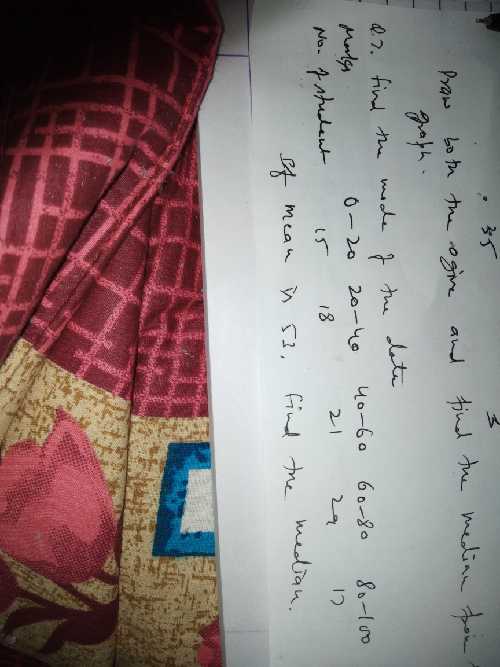 35 3
Draw both the ogive and find the median from
graph.
Q.7. find the mode of the data
Marks 0-20 20-40 40-60 60-80 80-100
No. of student 15 18 21 29 17
If mean is 53, find the median.